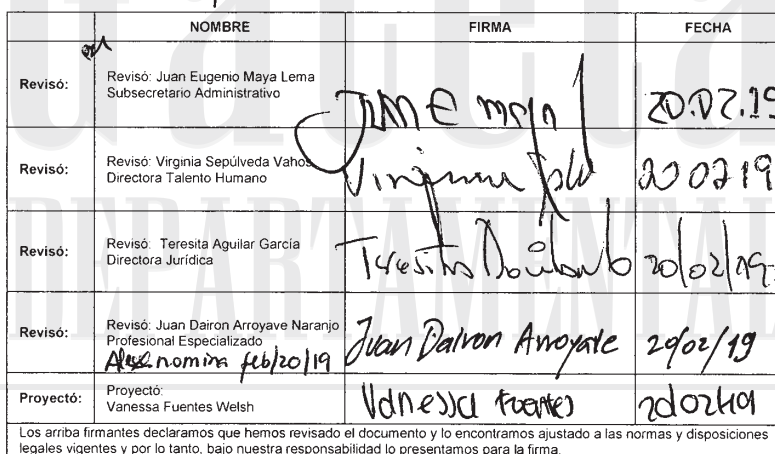 NOMBRE FIRMA FECHA
Revisó: Revisó: Juan Eugenio Maya Lema
Subsecretario Administrativo
Juan E Maya 20.02.19
Revisó: Revisó: Virginia Sepúlveda Vahos
Directora Talento Humano
Virginia 20 02 19
Revisó: Revisó: Teresita Aguilar García
Directora Jurídica
Teresita Aguilar 20/02/19
Revisó: Revisó: Juan Dairon Arroyave Naranjo
Profesional Especializado
nomina feb/20/19
Juan Dairon Arroyave 20/02/19
Proyectó: Proyectó:
Vanessa Fuentes Welsh
Vanessa Fuentes 20/02/19
Los arriba firmantes declaramos que hemos revisado el documento y lo encontramos ajustado a las normas y disposiciones
legales vigentes y por lo tanto, bajo nuestra responsabilidad lo presentamos para la firma.
DEPARTAMENTAL